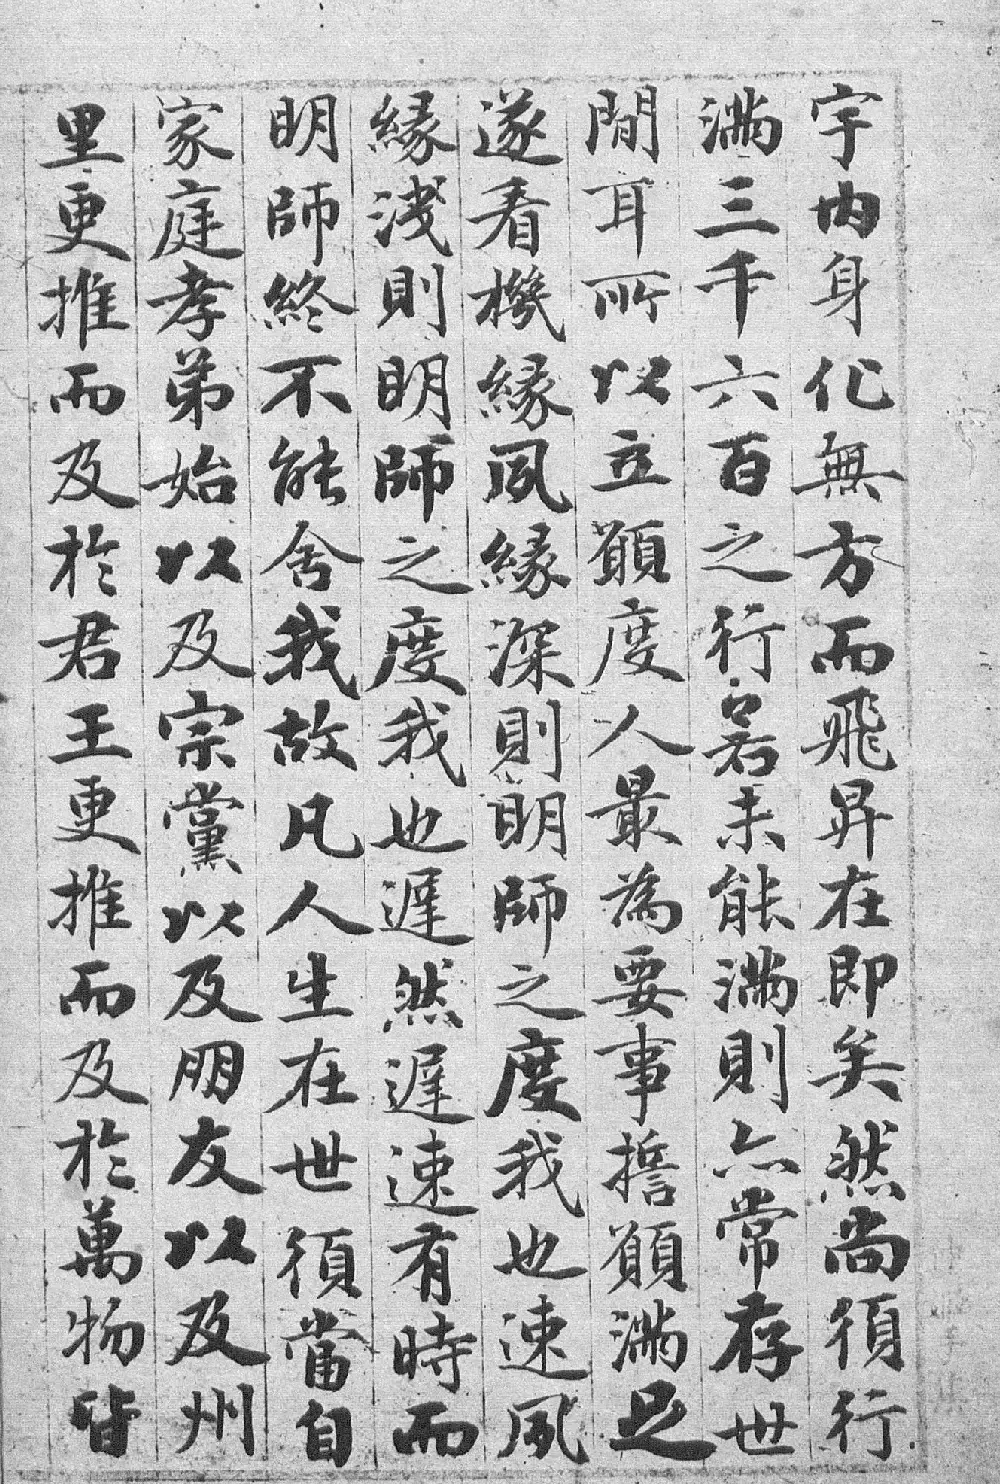 宇内身化無方而飛昇在即矣然尚須行
滿三千六百之行若未能滿則亦常存世
間耳所以立願度人最為要事誓願滿足
遂看機緣夙緣深則明師之度我也速夙
緣淺則明師之度我也遲然遲速有時而
明師終不能舍我故凡人生在世須當自
家庭孝弟始以及宗黨以及朋友以及州
里更推而及於君王更推而及於萬物皆